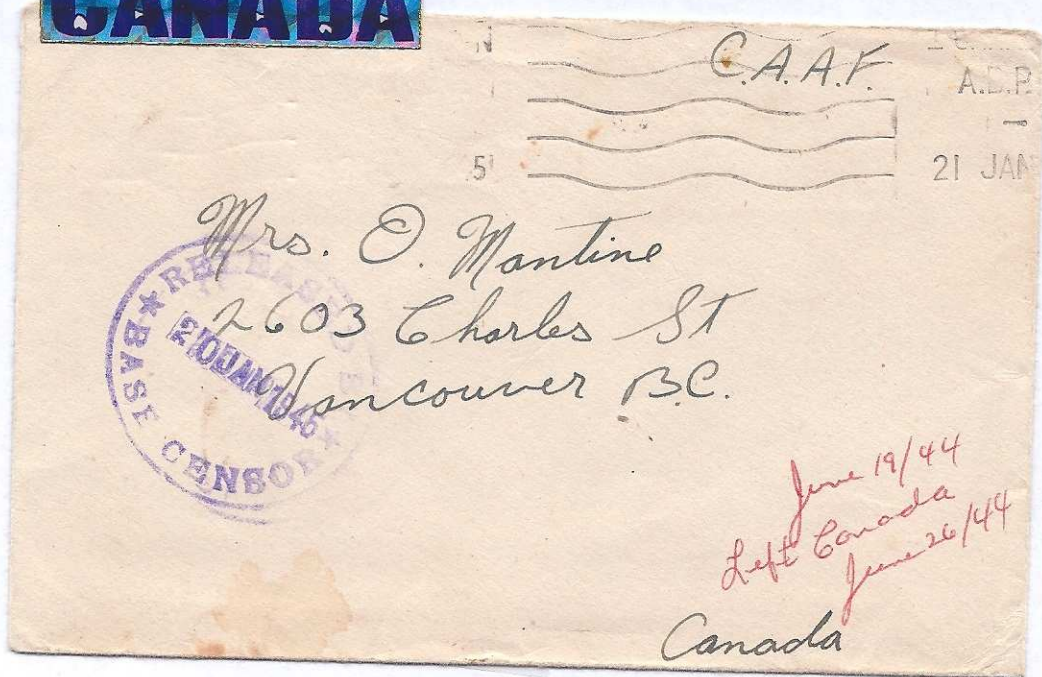 CANADA
C.A.A.F.
A.D.P.
21 JAN
Mrs. O. Mantine
2603 Charles St
Vancouver B.C.
RELEASED
21 JAN 1945
BASE CENSOR
June 19/44
Left Canada
June 26/44
Canada